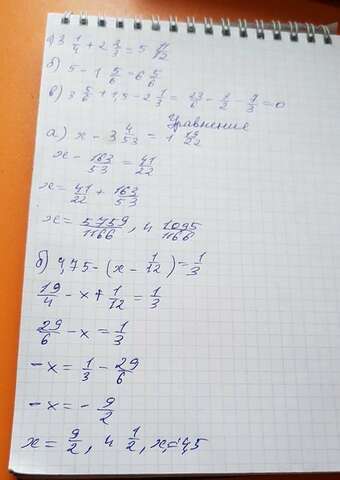 а) 3 1/4 + 2 2/3 = 5 11/12
б) 5 - 1 5/6 = 6 5/6
в) 3 5/6 + 1,5 - 2 1/3 = 23/6 - 3/2 - 7/3 = 0
Уравнение
а) x - 3 4/53 = 1 19/22
x - 163/53 = 41/22
x = 41/22 + 163/53
x = 5759/1166, 4 1095/1166
б) 4,75 - (x - 1/12) = 1/3
19/4 - x + 1/12 = 1/3
29/6 - x = 1/3
-x = 1/3 - 29/6
-x = - 9/2
x = 9/2, 4 1/2, x = 4,5